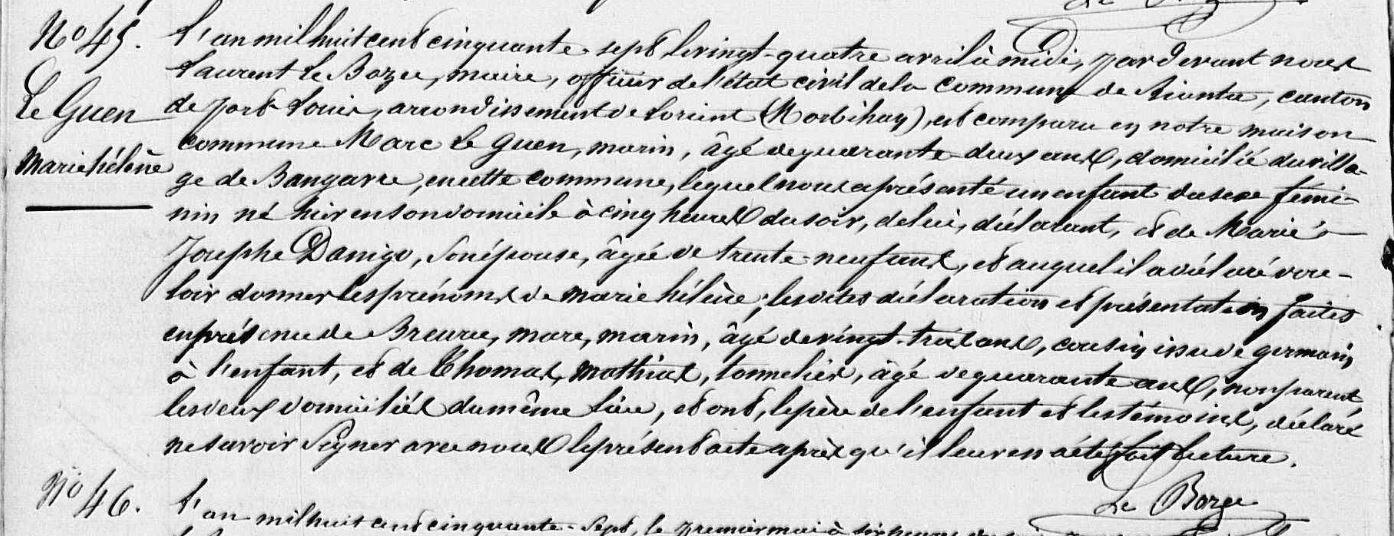 No 45.
Le Guen
Marie hélène
L'an mil huit cent cinquante-sept le vingt-quatre avril à midi, par devant nous
Laurent Le Bozec, maire, officier de l'état civil de la commune de Riantec, canton
de port-Louis, arrondissement de Lorient (Morbihan), est comparu en notre maison
commune Marc Le Guen, marin, âgé de quarante-deux ans, domicilié du villa-
ge de Bangavre, en cette commune, lequel nous a présenté un enfant du sexe fémi-
nin né hier en son domicile à cinq heures du soir, de lui, déclarant, et de Marie-
Josephe Danigo, son épouse, âgée de trente-neuf ans, et auquel il a déclaré vou-
loir donner les prénoms de Marie hélène; lesdites déclaration et présentation faites
en présence de Breurec, marc, marin, âgé de vingt-trois ans, cousin issu de germain
à l'enfant, et de Thomas, mathias, tonnelier, âgé de quarante ans, non parent
les deux domiciliés du même lieu, et ont, le père de l'enfant et les témoins, déclaré
ne savoir signer avec nous le présent acte après qu'il leur en a été fait lecture.
Le Bozec
No 46.
L'an mil huit cent cinquante-sept, le premier mai à six heures du soir